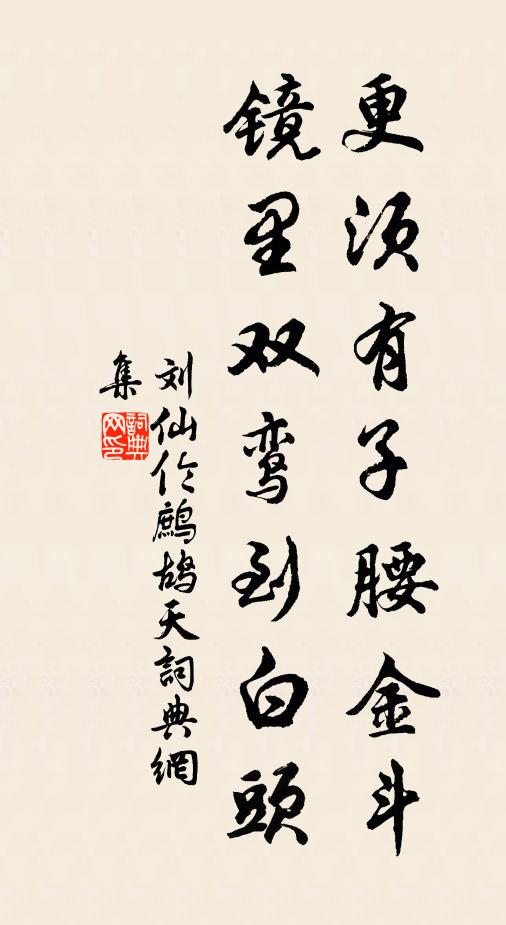 更须有子腰金斗
镜里双鸾到白頭
刘仙伦鹧鸪天詞典網
集
詞典
网印